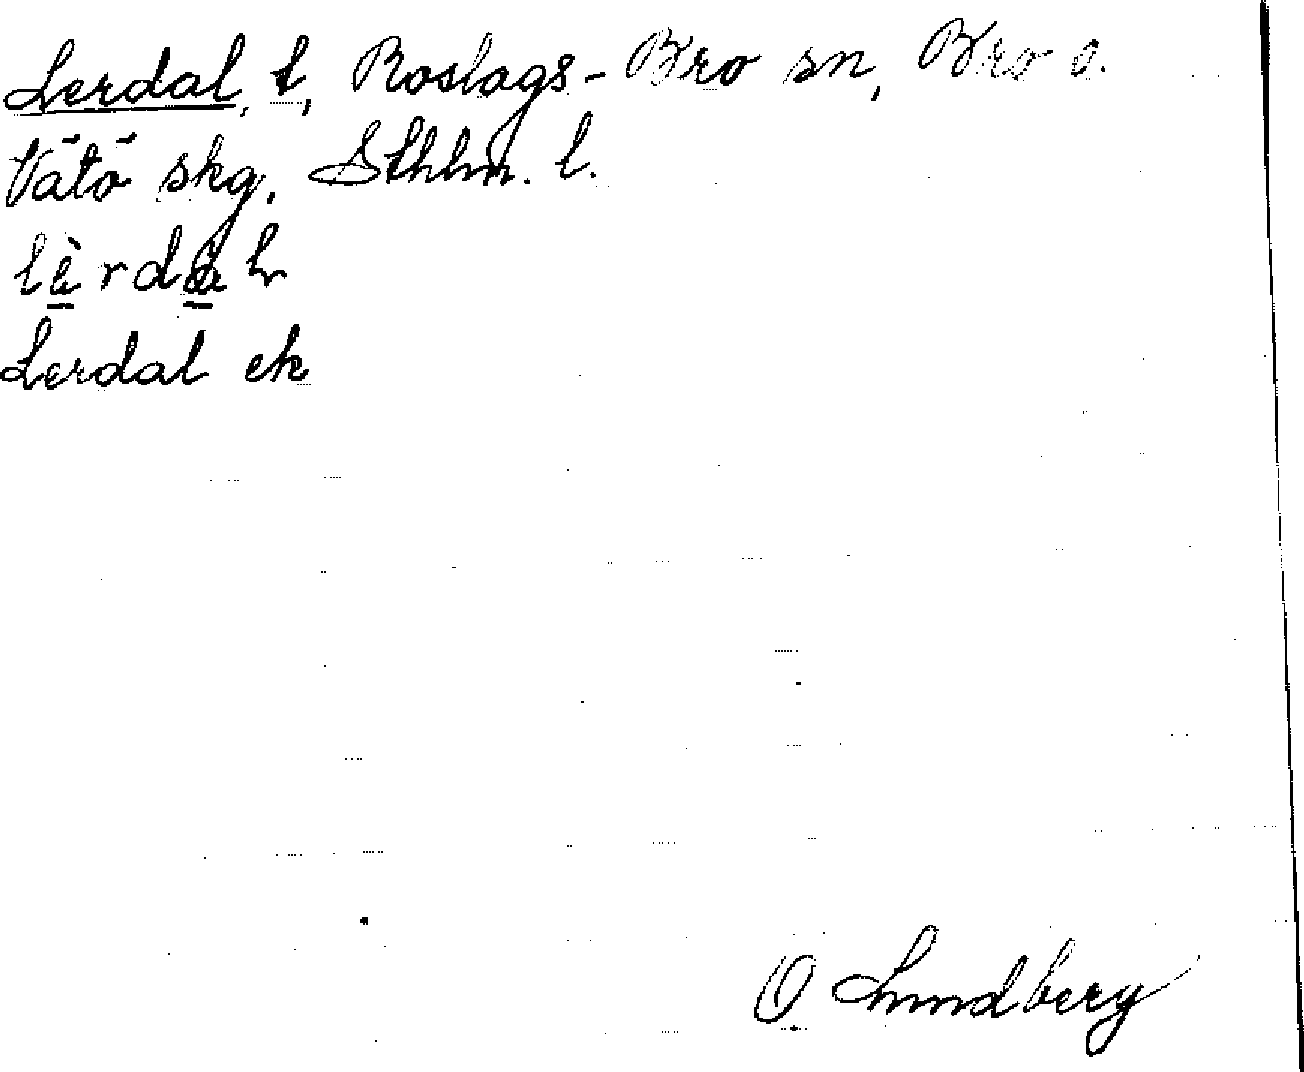 Lerdal, t, Roslags-Bro sn, Bro o.
Vätö skg, Sthlm. l.
lè̱rda̱l
Lerdal ek
O Lundberg